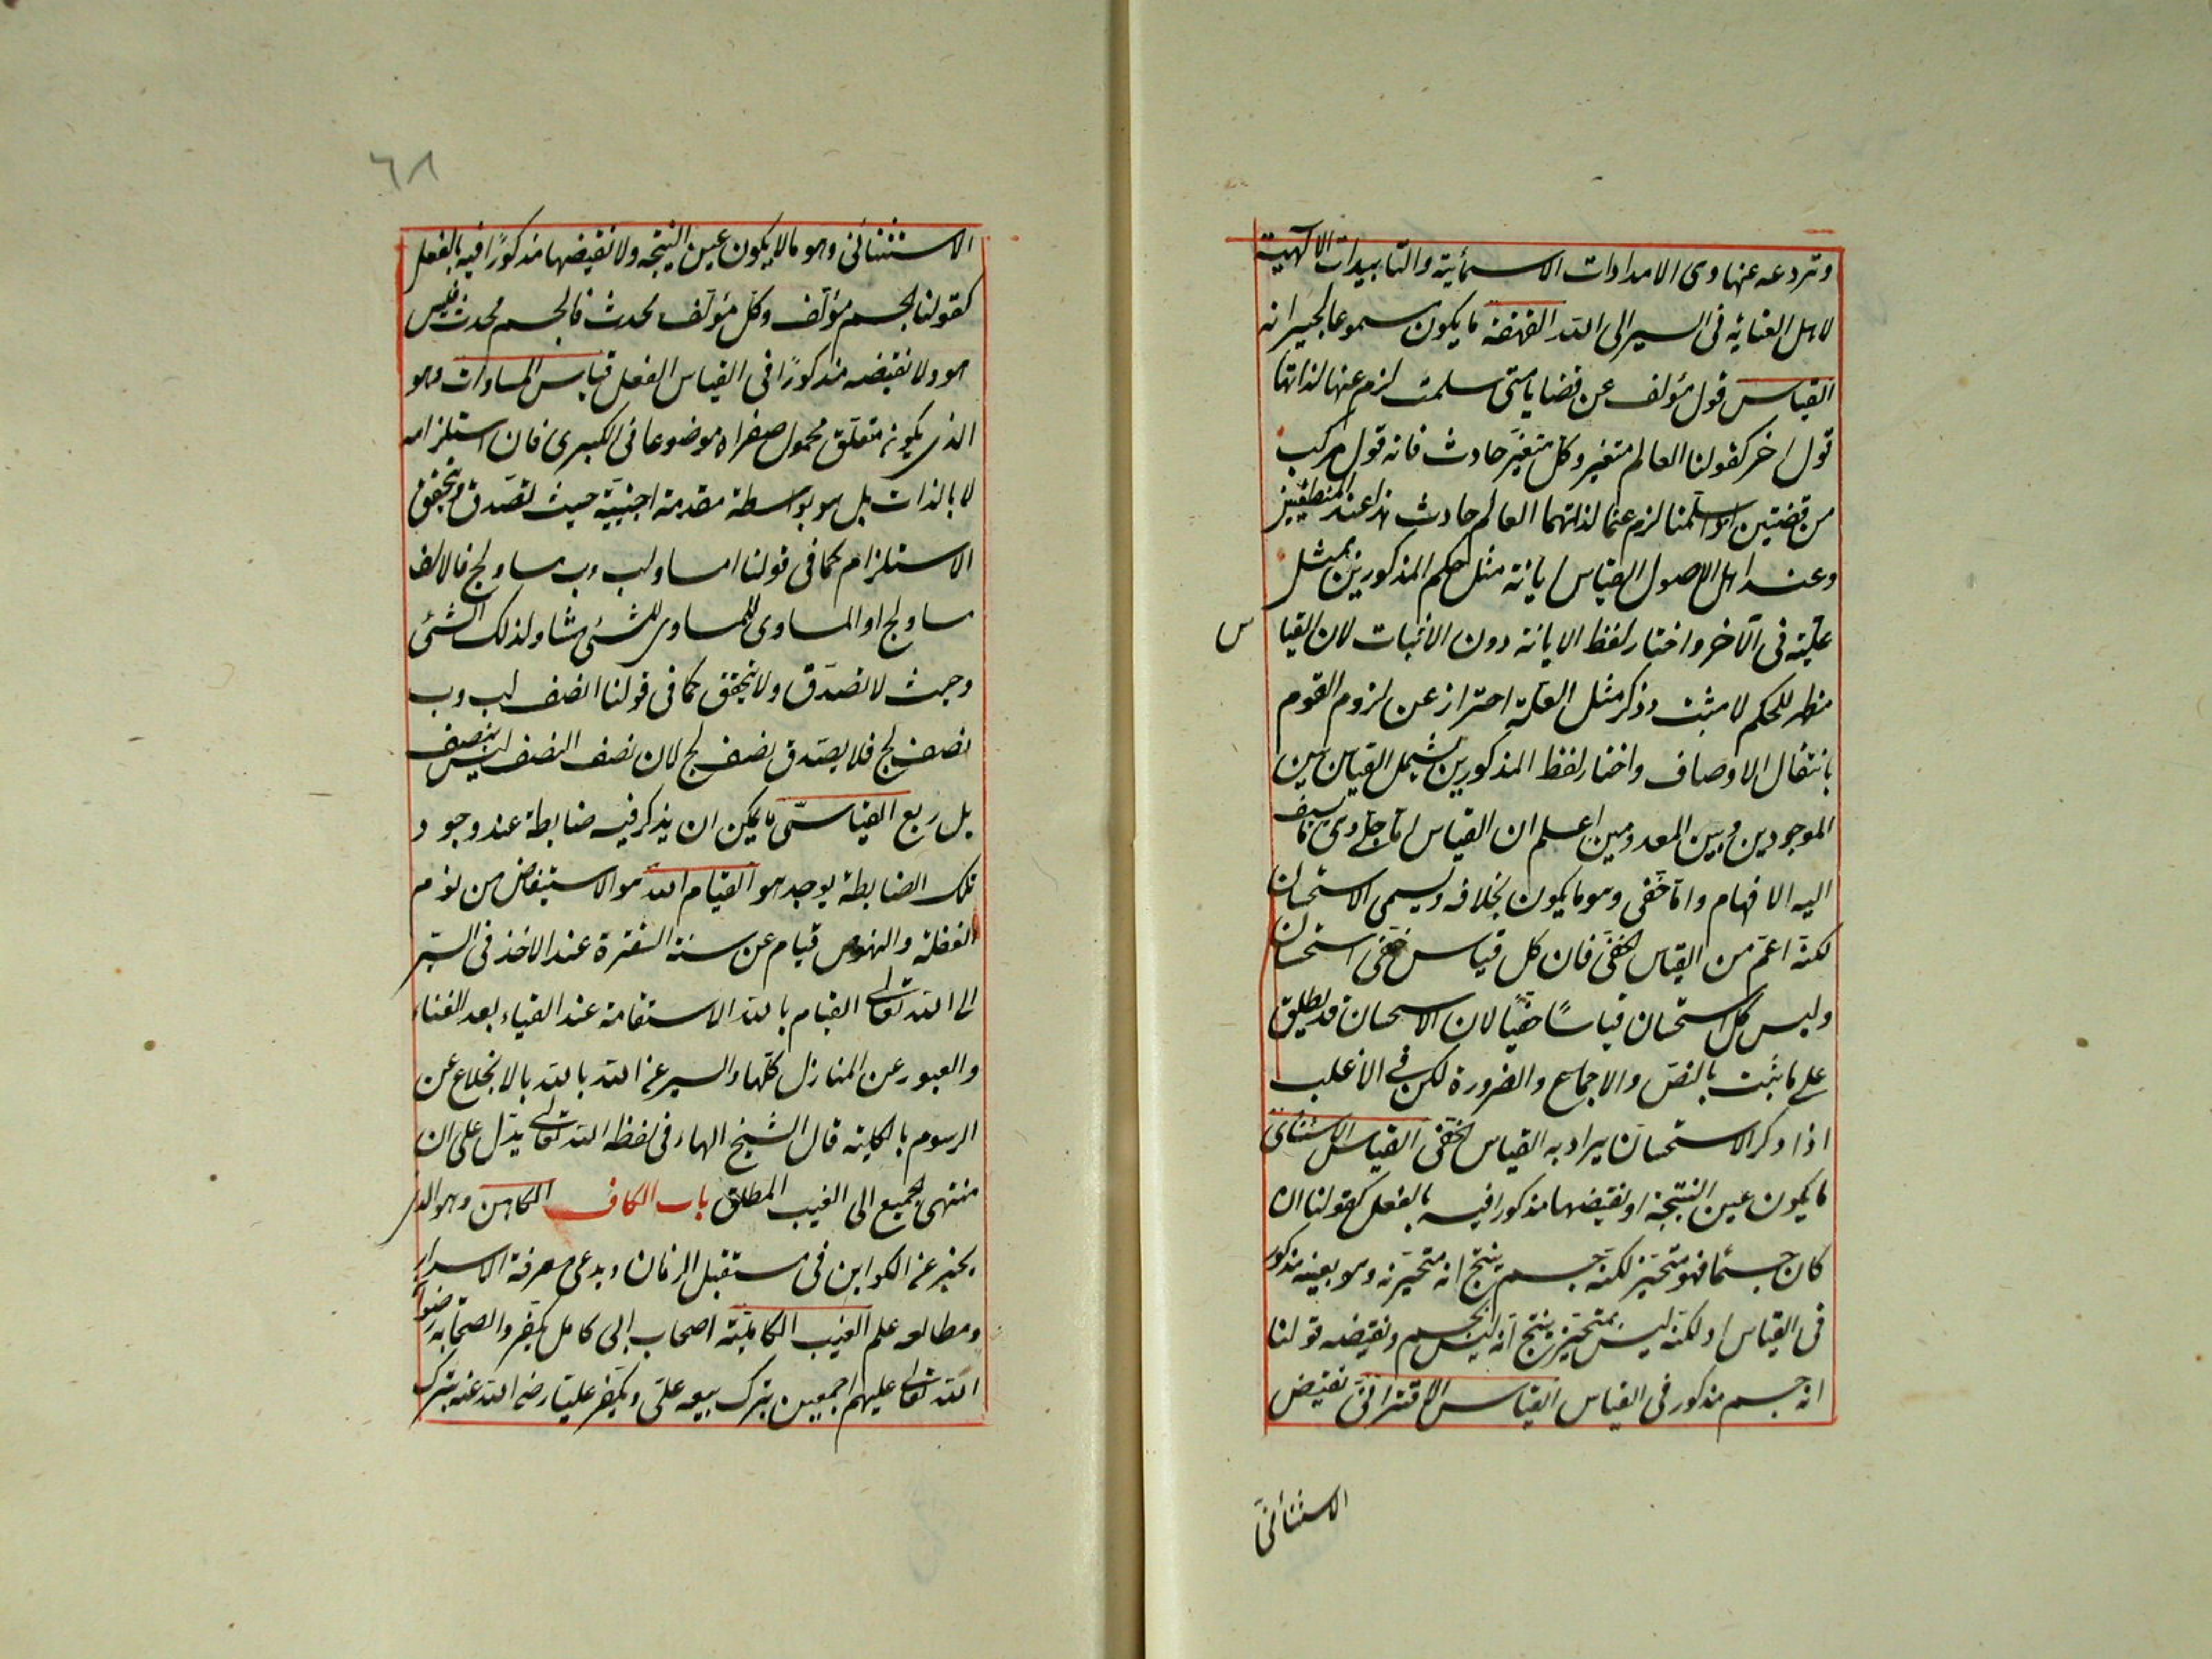 وتردعه عنها وى الامدادات الاسمائية والتاييدات الالهية
لاهل العناية فى السير الى الله القهقهة ما يكون مسموعا لجيرانه
القياس قول مؤلف عن قضايا متى سلمت لزم عنها لذاتها
قول اخر كقولنا العالم متغير وكل متغير حادث فانه قول مركب
من قضيتين اذا سلمنا لزم عنهما لذاتهما العالم حادث هذا عند المنطقيين
وعند اهل الاصول القياس ابانة مثل حكم المذكورين بمثل
علته فى الآخر واختار لفظ الابانة دون الاثبات لان القيا س
مظهر للحكم لا مثبت وذكر مثل العلة احتراز عن لزوم القوم
بانتقال الاوصاف واختار لفظ المذكورين ليشمل القياس بين
الموجودين وبين المعدومين اعلم ان القياس اما جلى وى ما يسبق
اليه الافهام واما خفى وهو ما يكون بخلافه ويسمى الاستحسان
لكنه اعم من القياس الخفى فان كل قياس خفى استحسان
وليس كل استحسان قياسًا خفيًا لان الاسحسان قد يطلق
على ما ثبت بالنص والاجماع والضرورة لكن فى الاغلب
اذا ذكر الاستحسان يراد به القياس الخفى القياس الاستثنائى
ما يكون عين النتيجة او نقيضها مذكورا فيه بالفعل كقولنا ان
كان جسمًا فهو متحيز لكنه جسم ينتج انه متحيز وهو بعينه مذكور
فى القياس او لكنه ليس بمتحيز ينتج انه ليس بجسم ونقيضه قولنا
انه جسم مذكور فى القياس القياس الاقترانى نقيض
الاستثنائى
٦٨
الاستثنائى وهو ما لا يكون عين النتيجة ولا نقيضها مذكورًا فيه بالفعل
كقولنا الجسم مؤلف وكل مؤلف محدث فالجسم محدث فليس
هو ولا نقيضه مذكورًا فى القياس الفعل قياس المساوات وهو
الذى يكون متعلق محمول صغراه موضوعا فى الكبرى فان استلزامه
لا بالذات بل هو بواسطة مقدمة اجنبية حيث تصدق ويتحقق
الاستلزام كما فى قولنا ا مساو لب وب مساو لج فالالف
مساو لج او المساوى للمساوى للشئ مساو لذلك الشئ
وحيث لا تصدق ولا يتحقق كما فى قولنا ا نصف لب وب
نصف لج فلا يصدق نصف لج لان نصف النصف ليس بنصف
بل ربع القياسى ما يمكن ان يذكر فيه ضابطة عند وجود
تلك الضابطة يوجد هو القيام لله هو الاستيقاض من نوم
الغفلة والنهوض قيام عن سنة الفترة عند الاخذ فى السير
الى الله تعالى القيام بالله الاستقامة عند البقاء بعد الفناء
والعبور عن المنازل كلها والسير عن الله بالله بالانخلاع عن
الرسوم بالكلية قال الشيخ الهاء فى لفظ الله تعالى يدل على ان
منتهى الجميع الى الغيب المطلق باب الكاف الكاهن وهو الذى
يخبر عن الكواين فى مستقبل الزمان ويدعى معرفة الاسرار
ومطالعه علم الغيب الكاملية اصحاب ابى كامل يكفر والصحابه رضوا
الله تعالى عليهم اجمعين بترك بيعه على ويكفر عليا رضى الله عنه بترك